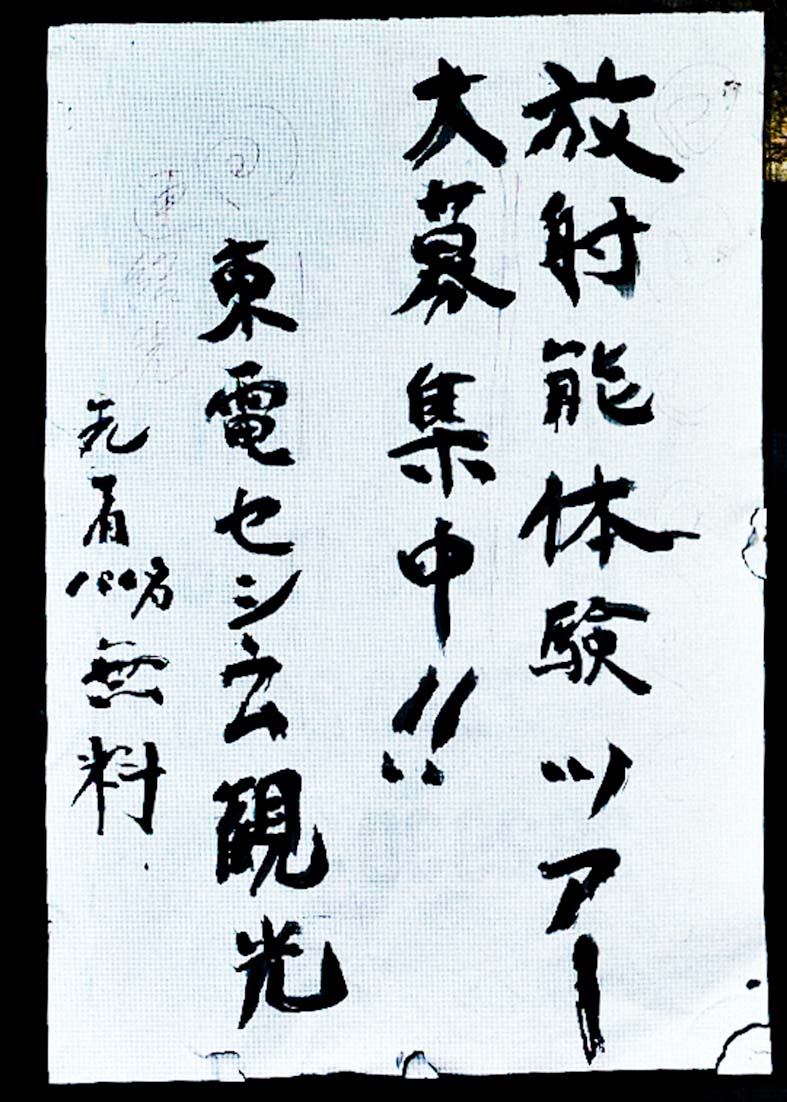 放射能体験ツアー
大募集中!!
東電セシウム観光
先着100名無料